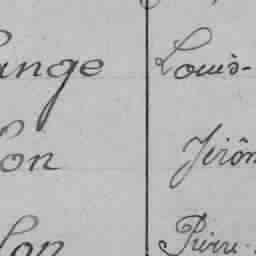 ange Louis-
lon Jérôn
lon Pierre-